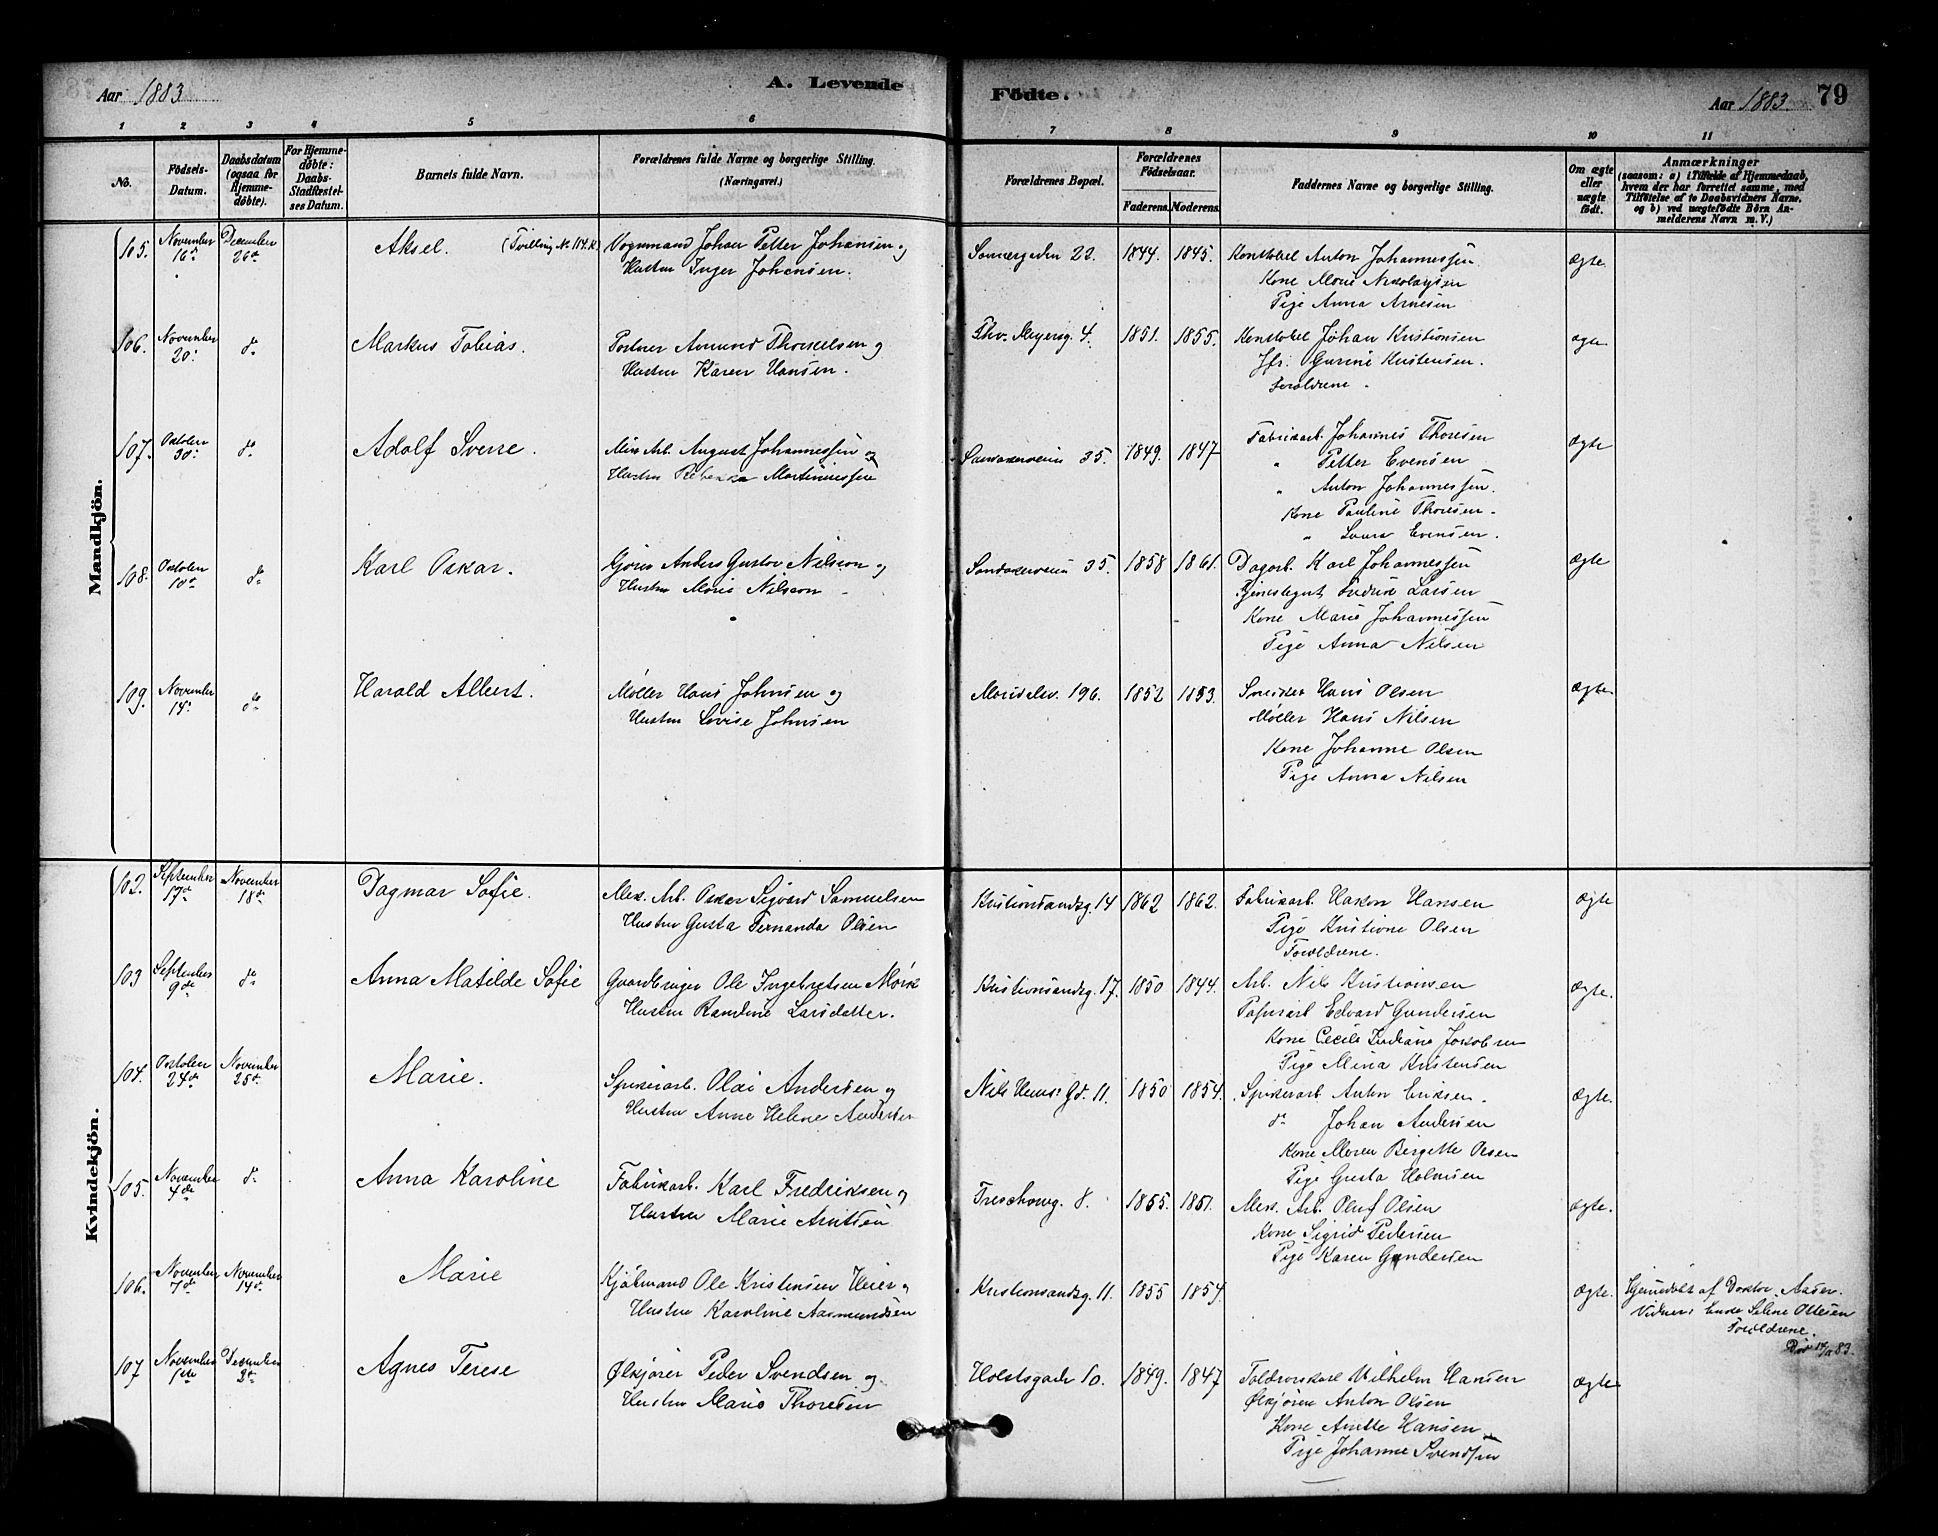 Aar 1883
A. Levende
Födte.
Aar 1883.
79
1 2 3 4 5 6 7 8 9 10 11
No.
Födsels-
Datum.
Daabsdatum
(ogsaa for
Hjemme-
döbte).
For Hjemme-
döbte:
Daabs-
Stadfæstel-
ses Datum.
Barnets fulde Navn.
Forældrenes fulde Navne og borgerlige Stilling.
(Næringsvei.)
Forældrenes Bopæl.
Forældrenes
Födselsaar.
Faderens. Moderens.
Faddernes Navne og borgerlige Stilling.
Om ægte
eller
uægte
födt.
Anmærkninger
(saasom: a) i Tilfælde af Hjemmedaab,
hvem der har forrettet samme, med
Tilföielse af to Daabsvidners Navne.
og b) ved uægtefödte Börn An-
melderens Navn m. V.)
Mandkjön.
105. November 16de December 26de Aksel. (Tvilling No 114. K) Vognmand Johan Petter Johansen og
Hustru Inger Johansen.
22. 1844. 1845. Konstabel Anton Johannessen
Kone Marie Nikolaysen
Pige Anna Arnesen
ægte
106. November 20. do Markus Tobias.
Hustru Karen Hansen.
Thv. Meyersg. 4. 1851. 1855. Konstabel Johan Kristiansen
Jfr. Gurine Kristensen.
Forældrene.
ægte
107. Oktober 30. do Adolf Sverre. August Johannessen og
Hustru Rebekka Martiniussen
Sandakerveien 35. 1849. 1847 Fabrikarb. Johannes Thoresen
" Petter Evensen
" Anton Johannessen.
Kone Pauline Thoresen.
" Laura Evensen.
ægte
108. Oktober 10de do Karl Oskar. Anders Gustav Nilsson og
Hustru Marie Nilsson
Sandakerveien 35. 1858 1861. Dagarb. Karl Johannessen
Larsen
Kone Marie Johannessen
Pige Anna Nilsen
ægte
109. November 14. do Harald Albert. Møller Hans Johnsen og
Hustru Lovise Johnsen
Maridalsv. 196. 1852 1853. Snekker Hans Olsen
Møller Hans Nilsen
Kone Johanne Olsen
Pige Anna Nilsen
ægte
Kvindekjön.
102. September 17de November 18de Dagmar Sofie. Mek. Arb. Oskar Sigvard Samuelsen
Hustru Gusta Fernanda Olsen
Kristiansandsg. 14 1862 1862. Fabrikarb. Hakon Hansen
Pige Kristiane Olsen
Forældrene.
ægte
103 September 9de do Anna Matilde Sofie Ole Ingebretsen Mørk
Hustru Randine Larsdatter.
Kristiansandsg. 17. 1850 1844. Arb. Nils Kristiansen
Papirarb Edvard Gundersen
Kone Cecile Jakobsen
Pige Mina Kristensen
ægte.
104. Oktober 24de November 25de Marie. Spikerarb. Olai Andersen og
Hustru Anne Helene Andersen
11. 1850 1854. Spikerarb Anton Eriksen.
do Johan Andersen
Kone Maren Birgitte Olsen
Pige Gusta Holmsen
ægte.
105. November 4de do Anna Karoline Fabrikarb. Karl Fredriksen og
Hustru Marie Arntsen
Treschowsg. 8. 1855. 1851. Mek. Arb. Oluf Olsen
Kone Sigrid Pedersen
Pige Karen Gundersen
ægte.
106. November 7de November 14de Marie Kjøbmand Ole Kristensen Heier og
Hustru Karoline Aasmundsen
Kristiansandsg. 11. 1855 1854.
ægte. Hjemmedøbt af Doktor Aaser.
Vidner: Enke Seline Ottesen
Forældrene.
Død 14/11 83.
107 November 1ste December 2de Agnes Terese Ølkjører Peder Svendsen og
Hustru Marie Thoresen
Holstsgade 10. 1849. 1847 Toldvæskarl Vilhelm Hansen
Ølkjører Anton Olsen
Kone Anette Hansen
Pige Johanne Svendsen
ægte